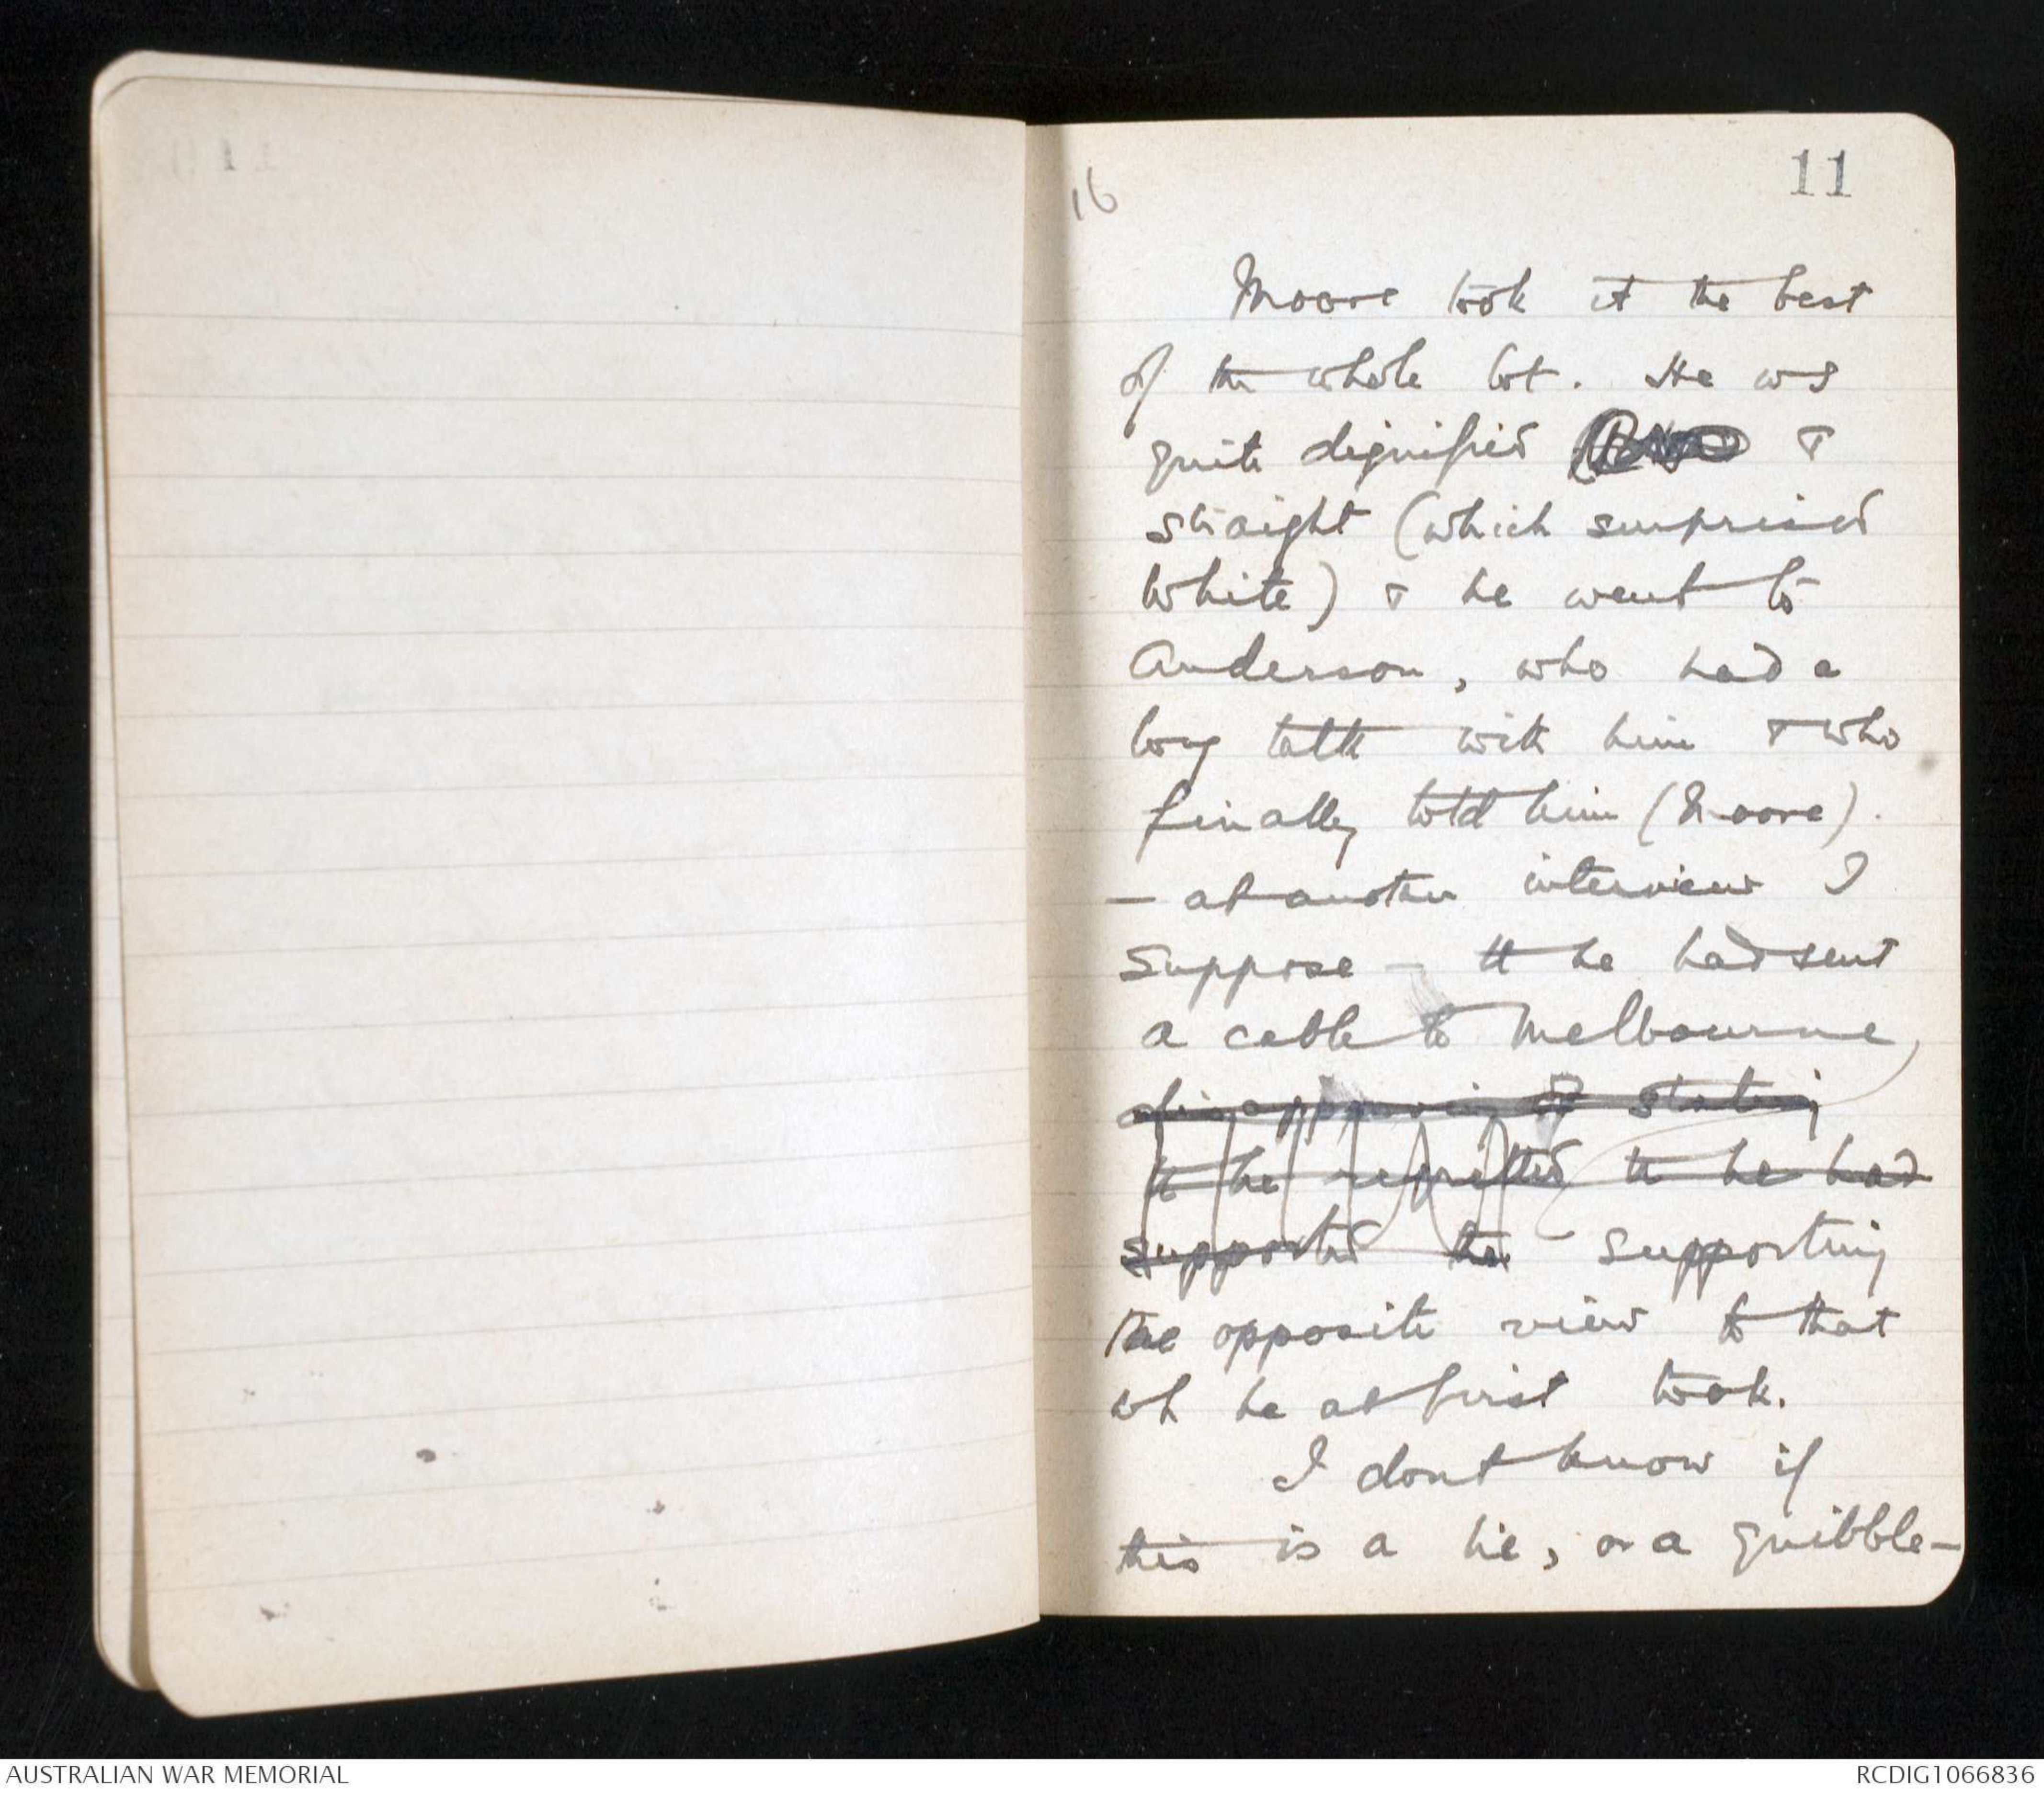 16
11
Moore took it the best
of the whole lot. He ws
quite dignified &
straight (which surprised
White) & he went to
Anderson, who had a
long talk with him & who
finally told him (Moore).
— at another interview I
suppose — tt he had sent
a cable to Melbourne,
disapproving of stating
tt he regretted tt he had
supported the supporting
the opposite view to that
wh he at first took.
I dont know if
this is a lie, or a quibble—
AUSTRALIAN WAR MEMORIAL
RCDIG1066836